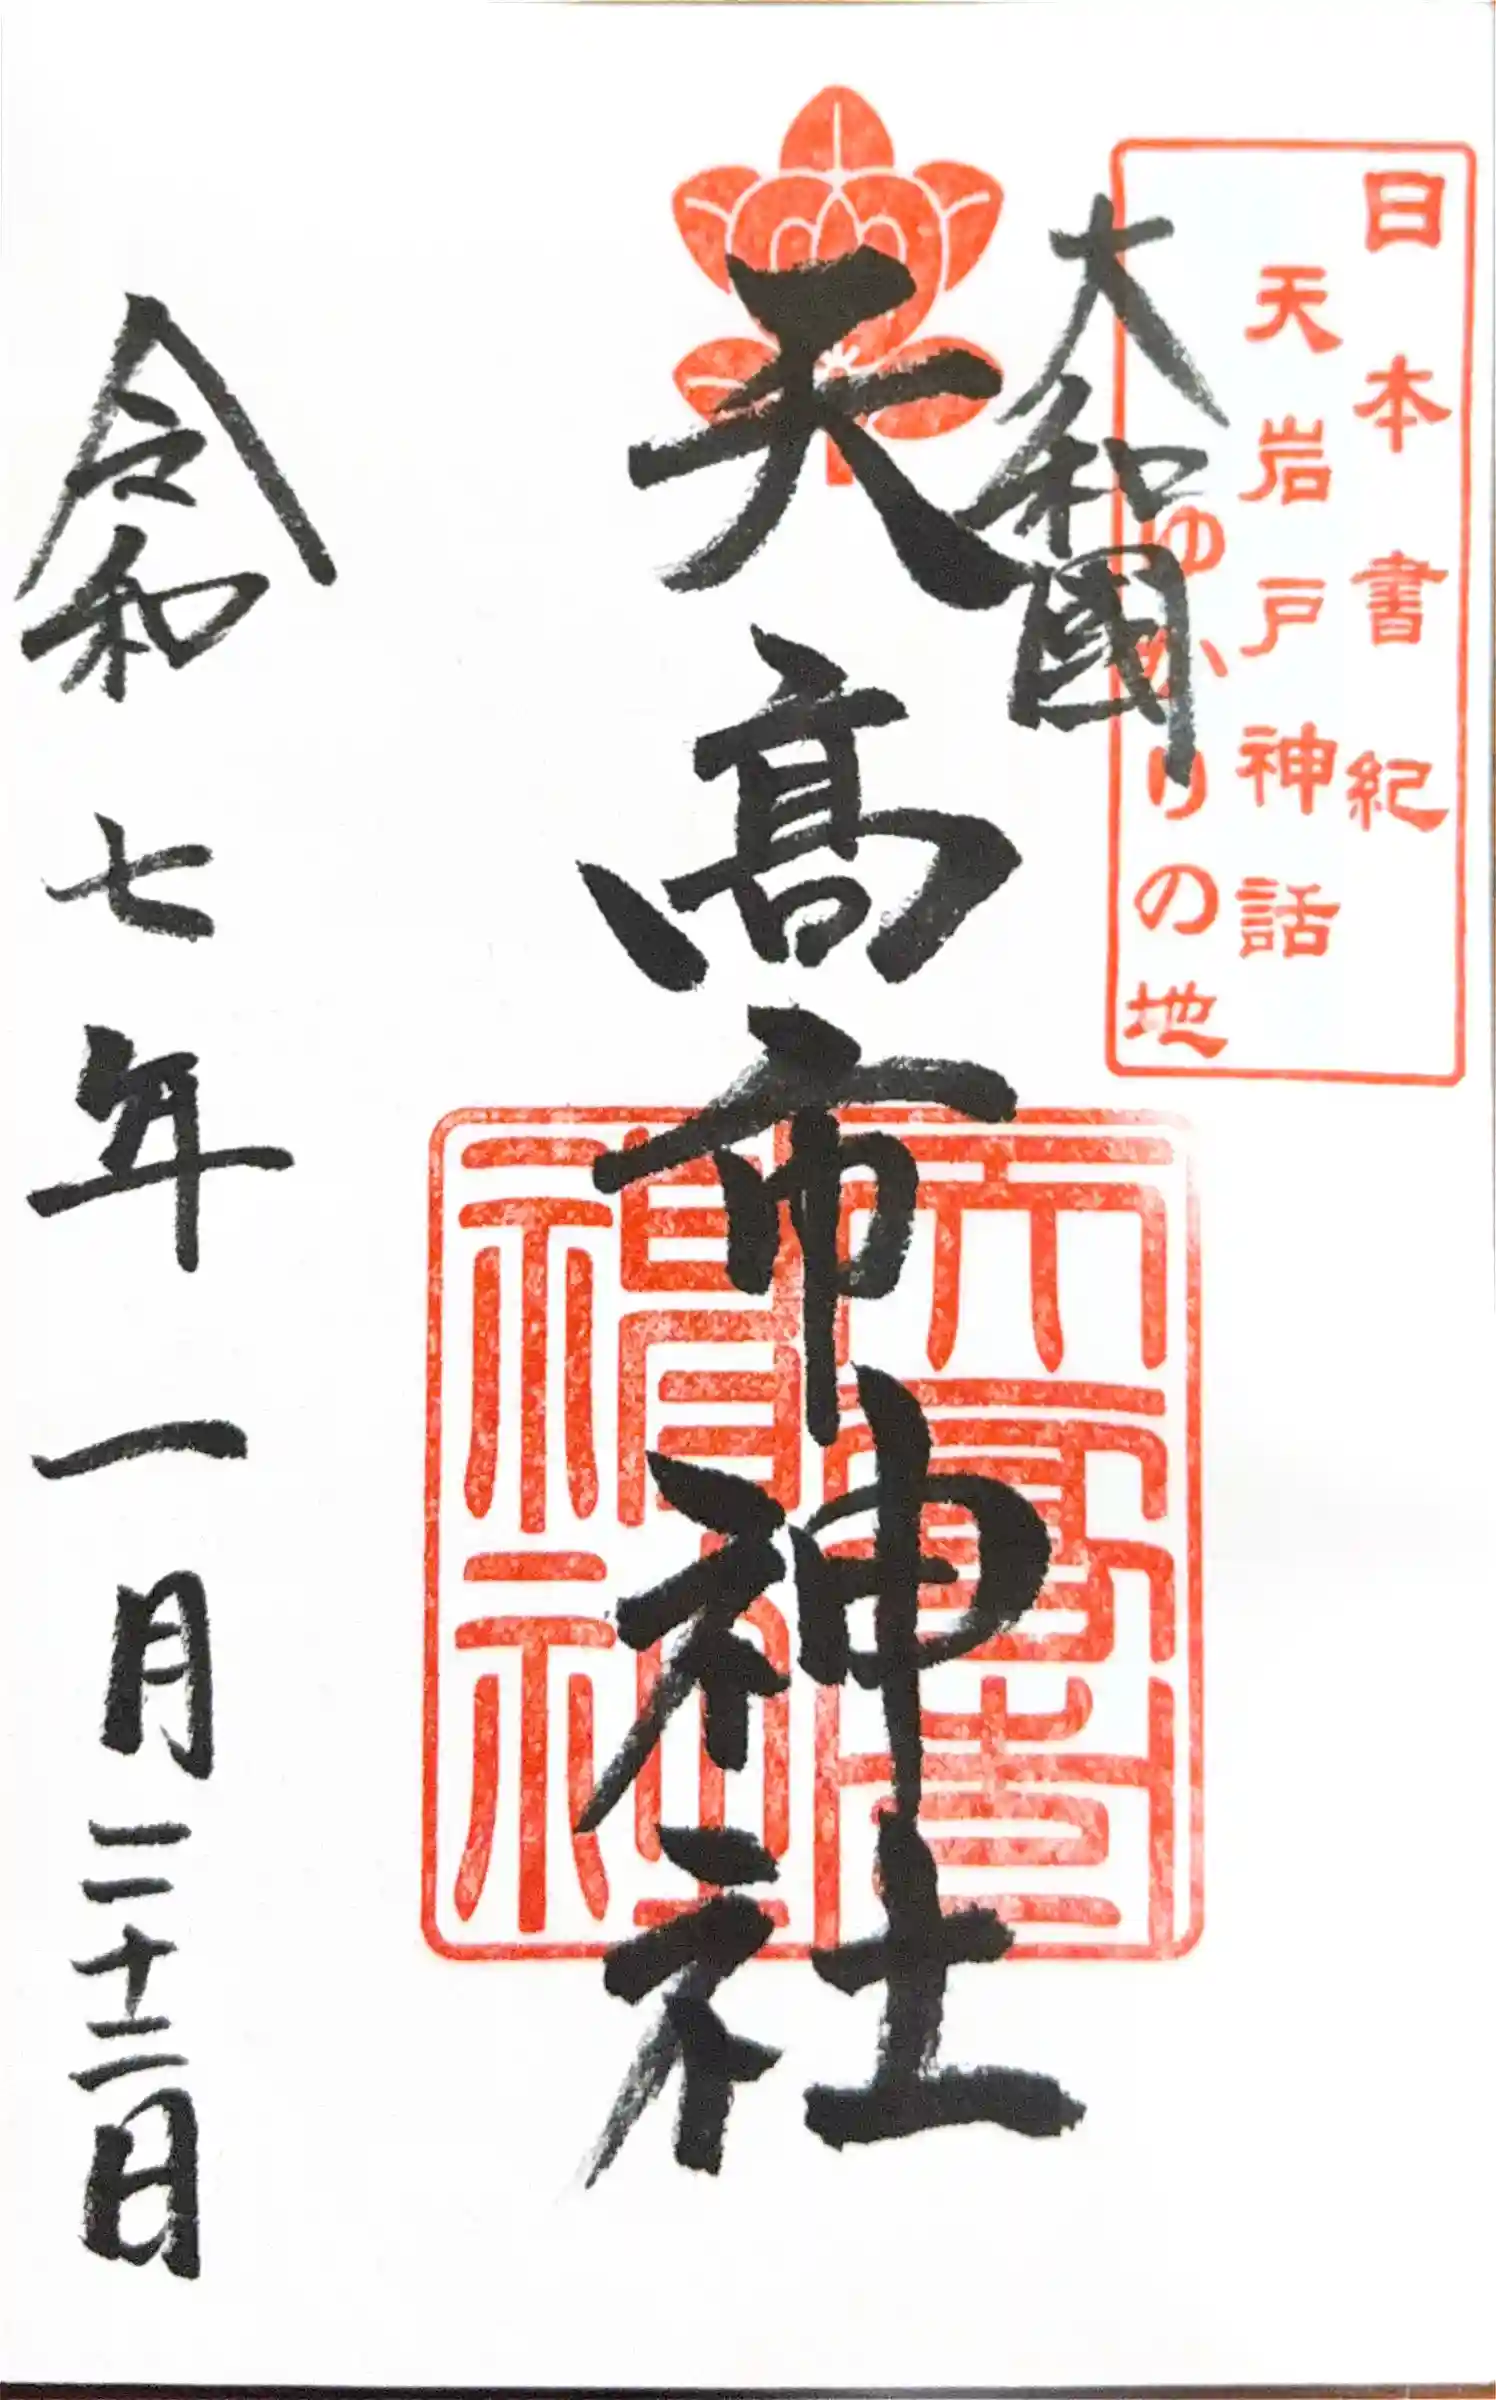 日本書紀
天岩戸神話
ゆかりの地
大和國
天髙市神社
令和七年一月二十二日